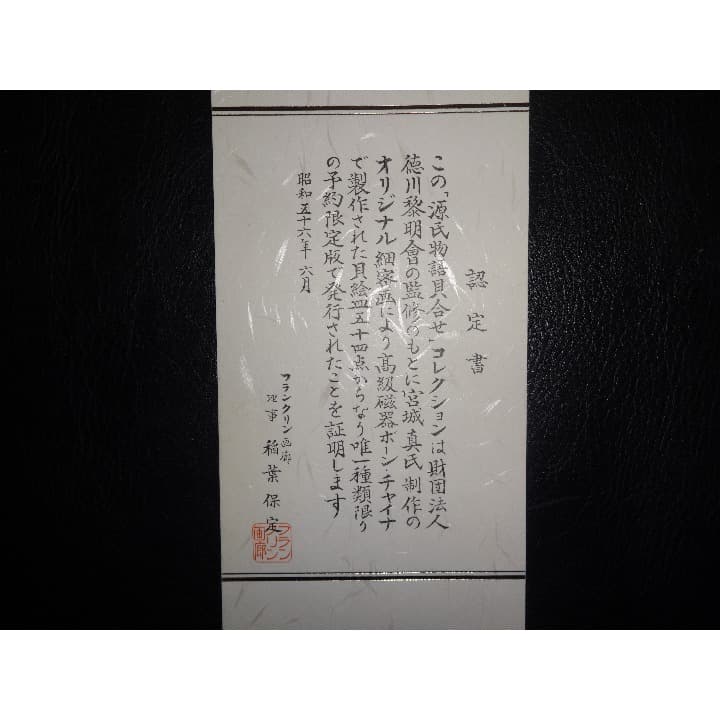 認定書
この「源氏物語貝合せ」コレクションは財団法人
徳川黎明會の監修のもとに宮城真氏制作の
オリジナル細密画により高級磁器ボーン・チャイナ
で製作された貝絵皿五十四点からなり唯一種類限り
の予約限定版で発行されたことを証明します
昭和五十六年六月
フランクリン画廊
理事 稲葉保定
フラン
クリン
画廊